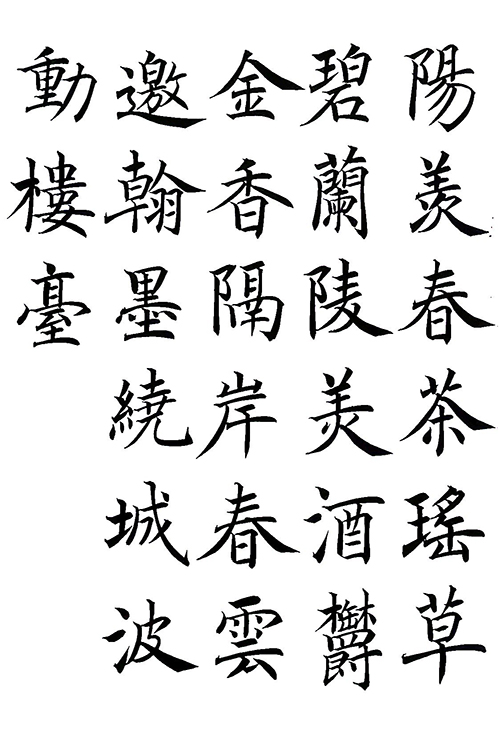 陽羨春茶瑤草
碧蘭陵美酒欝
金香隔岸春雲
邀翰墨繞城波
動樓臺